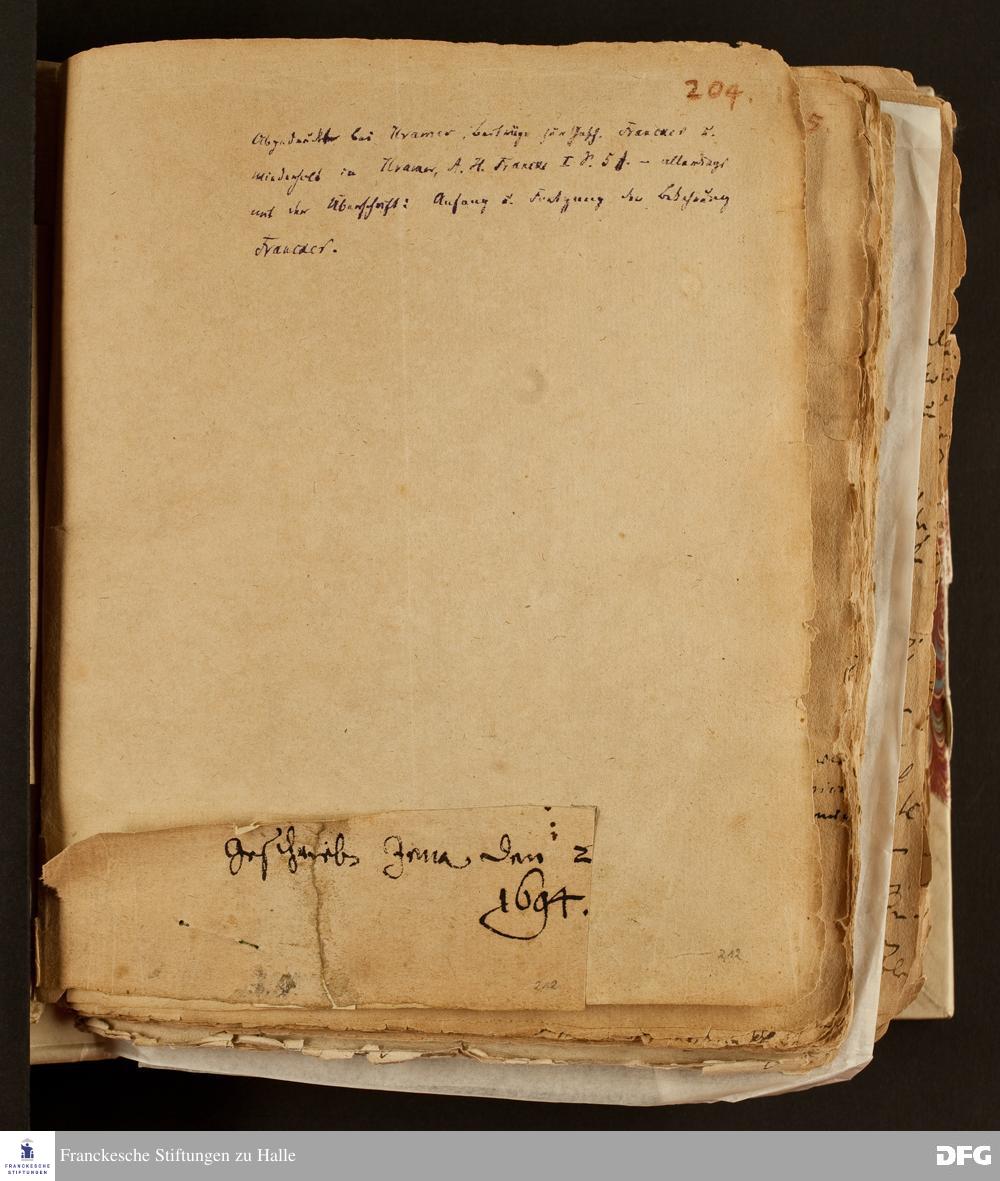 204.
Abgedruckt bei Kramer, Beiträge zur Gesch. Franckes u.
wiederholt in Kramer, A. H. Francke I S. 5 f. – allerdings
mit der Überschrift: Anfang u. Fortgang der Bekehrung
Franckes.
5.
Geschrieb Jena den 2
1694.
212
212
FRANCKESCHE
STIFTUNGEN
Franckesche Stiftungen zu Halle
DFG